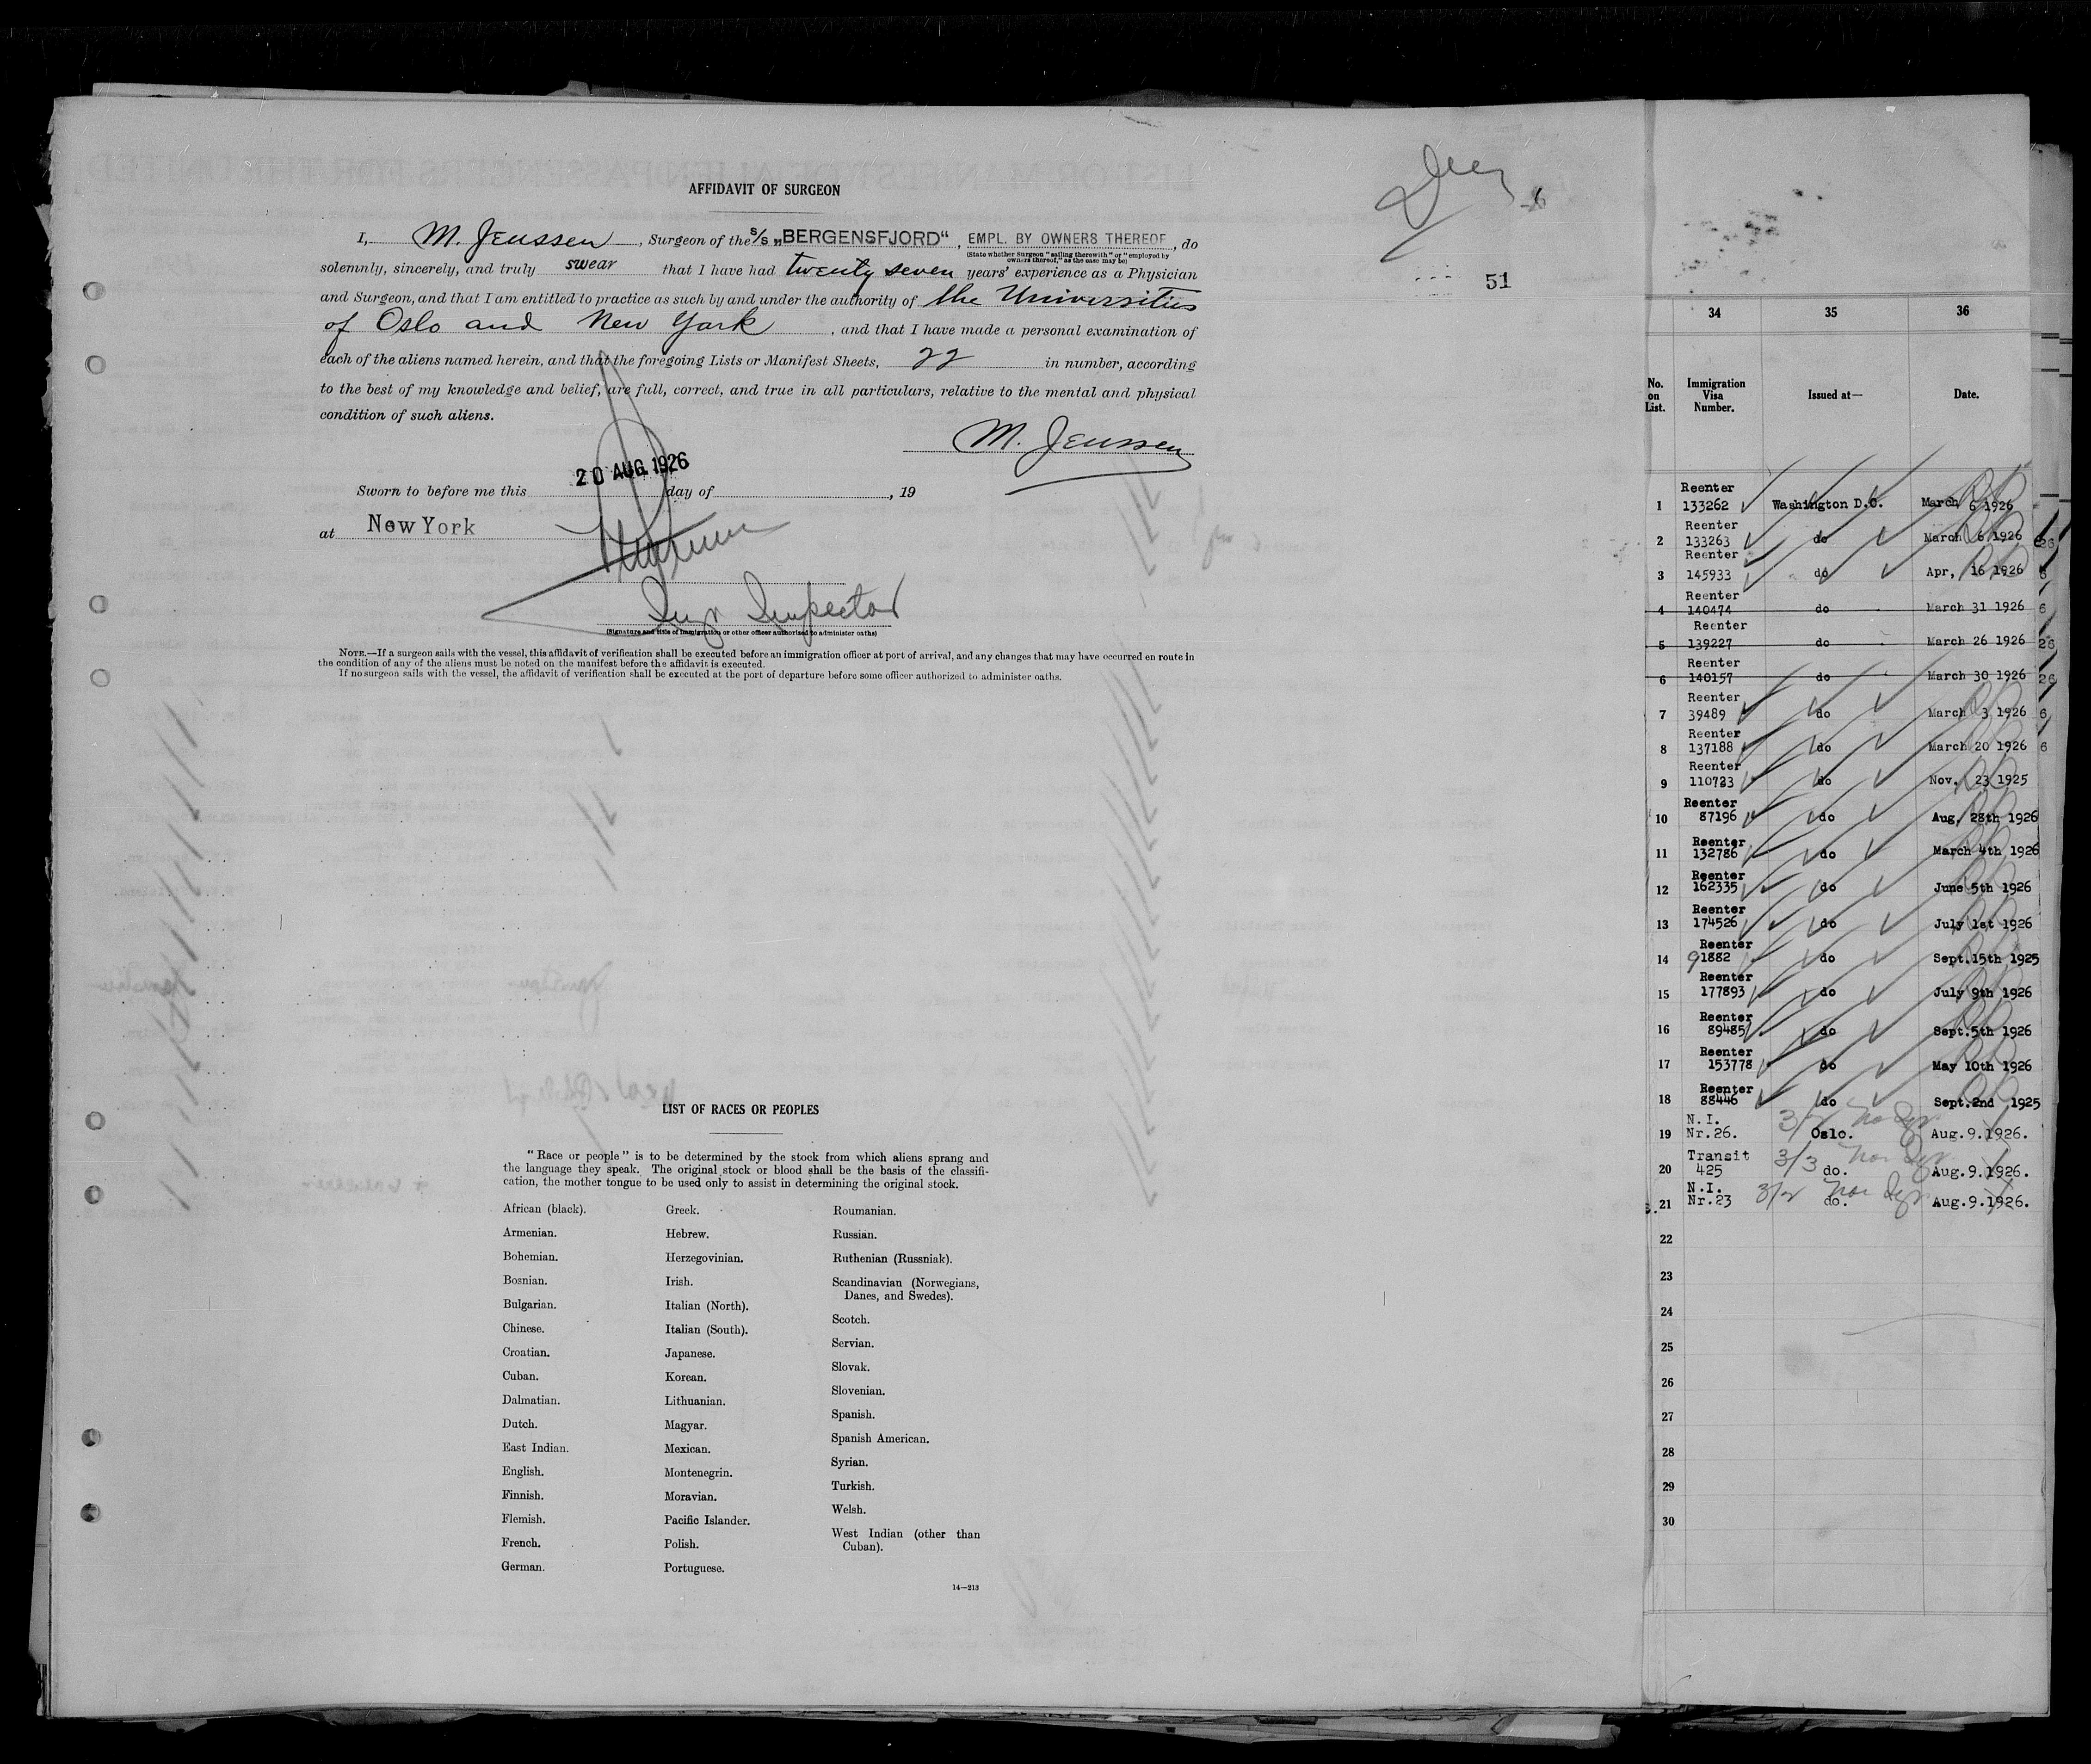 AFFIDAVIT OF SURGEON
I, M. Jenssen, Surgeon of the S/S „BERGENSFJORD“, EMPL. BY OWNERS THEREOF, do
(State whether Surgeon "sailing therewith" or "employed by
owners thereof," as the case may be)
solemnly, sincerely, and truly swear that I have had twenty seven years' experience as a Physician
and Surgeon, and that I am entitled to practice as such by and under the authority of the Universities
of Oslo and New York, and that I have made a personal examination of
each of the aliens named herein, and that the foregoing Lists or Manifest Sheets, 22 in number, according
to the best of my knowledge and belief, are full, correct, and true in all particulars, relative to the mental and physical
condition of such aliens.
M. Jenssen
20 AUG. 1926
Sworn to before me this day of , 19
at New York
Inspector
(Signature and title of immigration or other officer authorized to administer oaths)
NOTE.—If a surgeon sails with the vessel, this affidavit of verification shall be executed before an immigration officer at port of arrival, and any changes that may have occurred en route in
the condition of any of the aliens must be noted on the manifest before the affidavit is executed.
If no surgeon sails with the vessel, the affidavit of verification shall be executed at the port of departure before some officer authorized to administer oaths.
51
LIST OF RACES OR PEOPLES
"Race or people" is to be determined by the stock from which aliens sprang and
the language they speak. The original stock or blood shall be the basis of the classifi-
cation, the mother tongue to be used only to assist in determining the original stock.
African (black).
Armenian.
Bohemian.
Bosnian.
Bulgarian.
Chinese.
Croatian.
Cuban.
Dalmatian.
Dutch.
East Indian.
English.
Finnish.
Flemish.
French.
German.
Greek.
Hebrew.
Herzegovinian.
Irish.
Italian (North).
Italian (South).
Japanese.
Korean.
Lithuanian.
Magyar.
Mexican.
Montenegrin.
Moravian.
Pacific Islander.
Polish.
Portuguese.
Roumanian.
Russian.
Ruthenian (Russniak).
Scandinavian (Norwegians,
Danes, and Swedes).
Scotch.
Servian.
Slovak.
Slovenian.
Spanish.
Spanish American.
Syrian.
Turkish.
Welsh.
West Indian (other than
Cuban).
14—213
34 35 36
No. on List. Immigration Visa Number. Issued at— Date.
Reenter
1 133262 Washington D.C. March 6 1926
Reenter
2 133263 do March 6 1926
Reenter
3 145933 do Apr, 16 1926
Reenter
4 140474 do March 31 1926
Reenter
5 139227 do March 26 1926
Reenter
6 140157 do March 30 1926
Reenter
7 39489 do March 3 1926
Reenter
8 137188 do March 20 1926
Reenter
9 110723 do Nov. 23 1925
Reenter
10 87196 do Aug. 28th 1926
Reenter
11 132786 do March 4th 1926
Reenter
12 162335 do June 5th 1926
Reenter
13 174526 do July 1st 1926
Reenter
14 91882 do Sept.15th 1925
Reenter
15 177893 do July 9th 1926
Reenter
16 89485 do Sept.5th 1926
Reenter
17 153778 do May 10th 1926
Reenter
18 88446 do Sept.2nd 1925
N.I.
19 Nr.26. 3/2 Oslo. Aug.9.1926.
Transit
20 425 3/3 do. Aug.9.1926.
N.I.
21 Nr.23 3/2 do. Aug.9.1926.
22
23
24
25
26
27
28
29
30